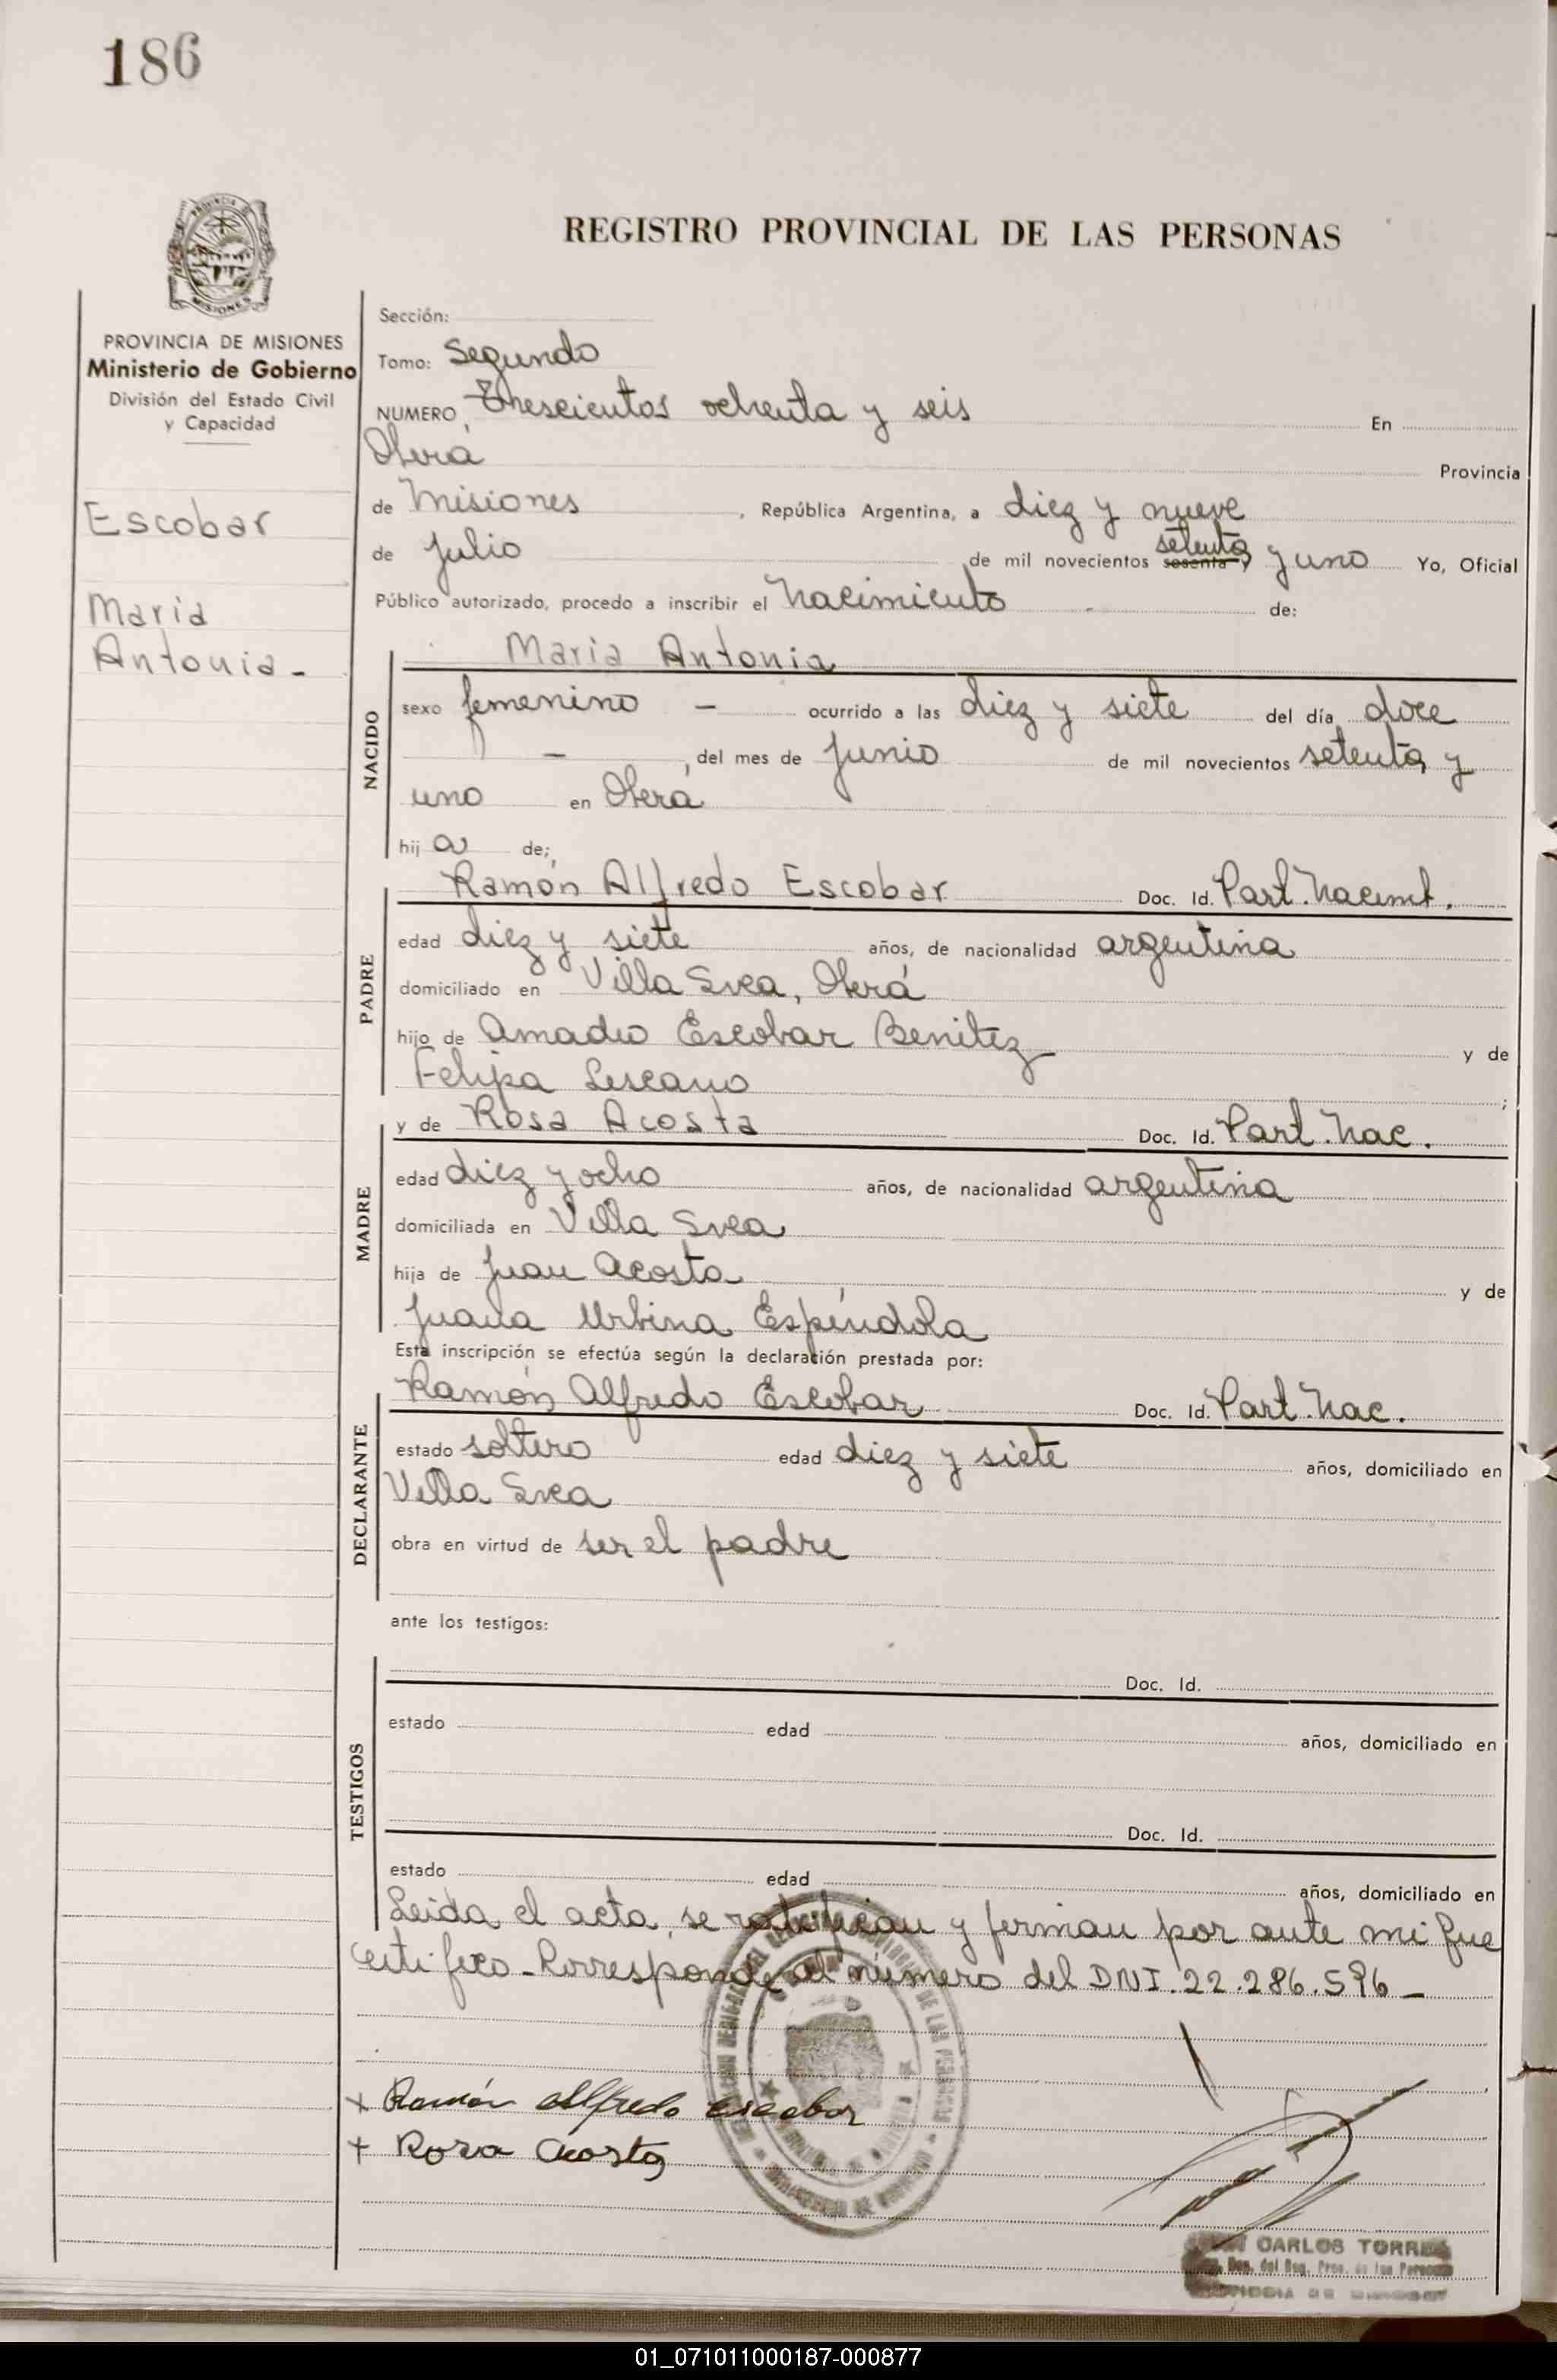 186
PROVINCIA
MISIONES
REGISTRO PROVINCIAL DE LAS PERSONAS
PROVINCIA DE MISIONES
Ministerio de Gobierno
División del Estado Civil
y Capacidad
Escobar
Maria
Antonia -
Sección:
Tomo: Segundo
NUMERO Trescientos ochenta y seis En
Oberá Provincia
de Misiones, República Argentina, a diez y nueve
de Julio de mil novecientos sesenta y setenta y uno Yo, Oficial
Público autorizado, procedo a inscribir el nacimiento - de:
NACIDO
Maria Antonia
sexo femenino - ocurrido a las diez y siete del día doce
- del mes de Junio de mil novecientos setenta y
uno en Oberá
hij a de;
PADRE
Ramón Alfredo Escobar Doc. Id. Part. Nacimt.
edad diez y siete años, de nacionalidad argentina
domiciliado en Villa Svea, Oberá
hijo de Amadeo Escobar Benitez y de
Felipa Lescano ;
MADRE
y de Rosa Acosta Doc. Id. Part. Nac.
edad diez y ocho años, de nacionalidad argentina
domiciliada en Villa Svea
hija de Juan Acosta y de
Juana Urbina Espíndola
Esta inscripción se efectúa según la declaración prestada por:
DECLARANTE
Ramón Alfredo Escobar Doc. Id. Part. Nac.
estado soltero edad diez y siete años, domiciliado en
Villa Svea
obra en virtud de ser el padre
ante los testigos:
TESTIGOS
Doc. Id.
estado edad años, domiciliado en
Doc. Id.
estado edad años, domiciliado en
Leida el acta, se ratifican y firman por ante mi que
certifico - Corresponde al número del DNI. 22.286.596 -
+ Ramón Alfredo Escobar
+ Rosa Acosta
CARLOS TORRES
01_071011000187-000877